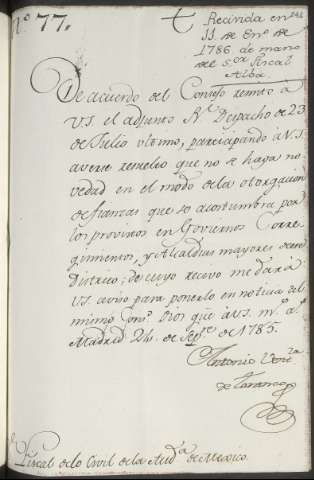 N.° 77.
Recivida en
11. de En.° de
1786. de mano
del S.or Fiscal
Alba.
De acuerdo del Consejo remito à
VS. el adjunto R.l Despacho de 23
de Julio ultimo, participando à VS.
averse resuelto que no se haga no-
vedad en el modo de la otorgacion
de fianzas que se acostumbra por
los provistos en Goviernos Corre-
gimientos, y Alcaldias mayores de ese
Distrito; de cuyo recivo me dará
VS. aviso para ponerlo en noticia del
mismo Con.° Dios gue à VS. m.s a.s
Madrid 24. de Sep.re de 1785.
Antonio Ven.ra
de Taranco
Fiscal de lo Civil de la Aud.a de Mexico.